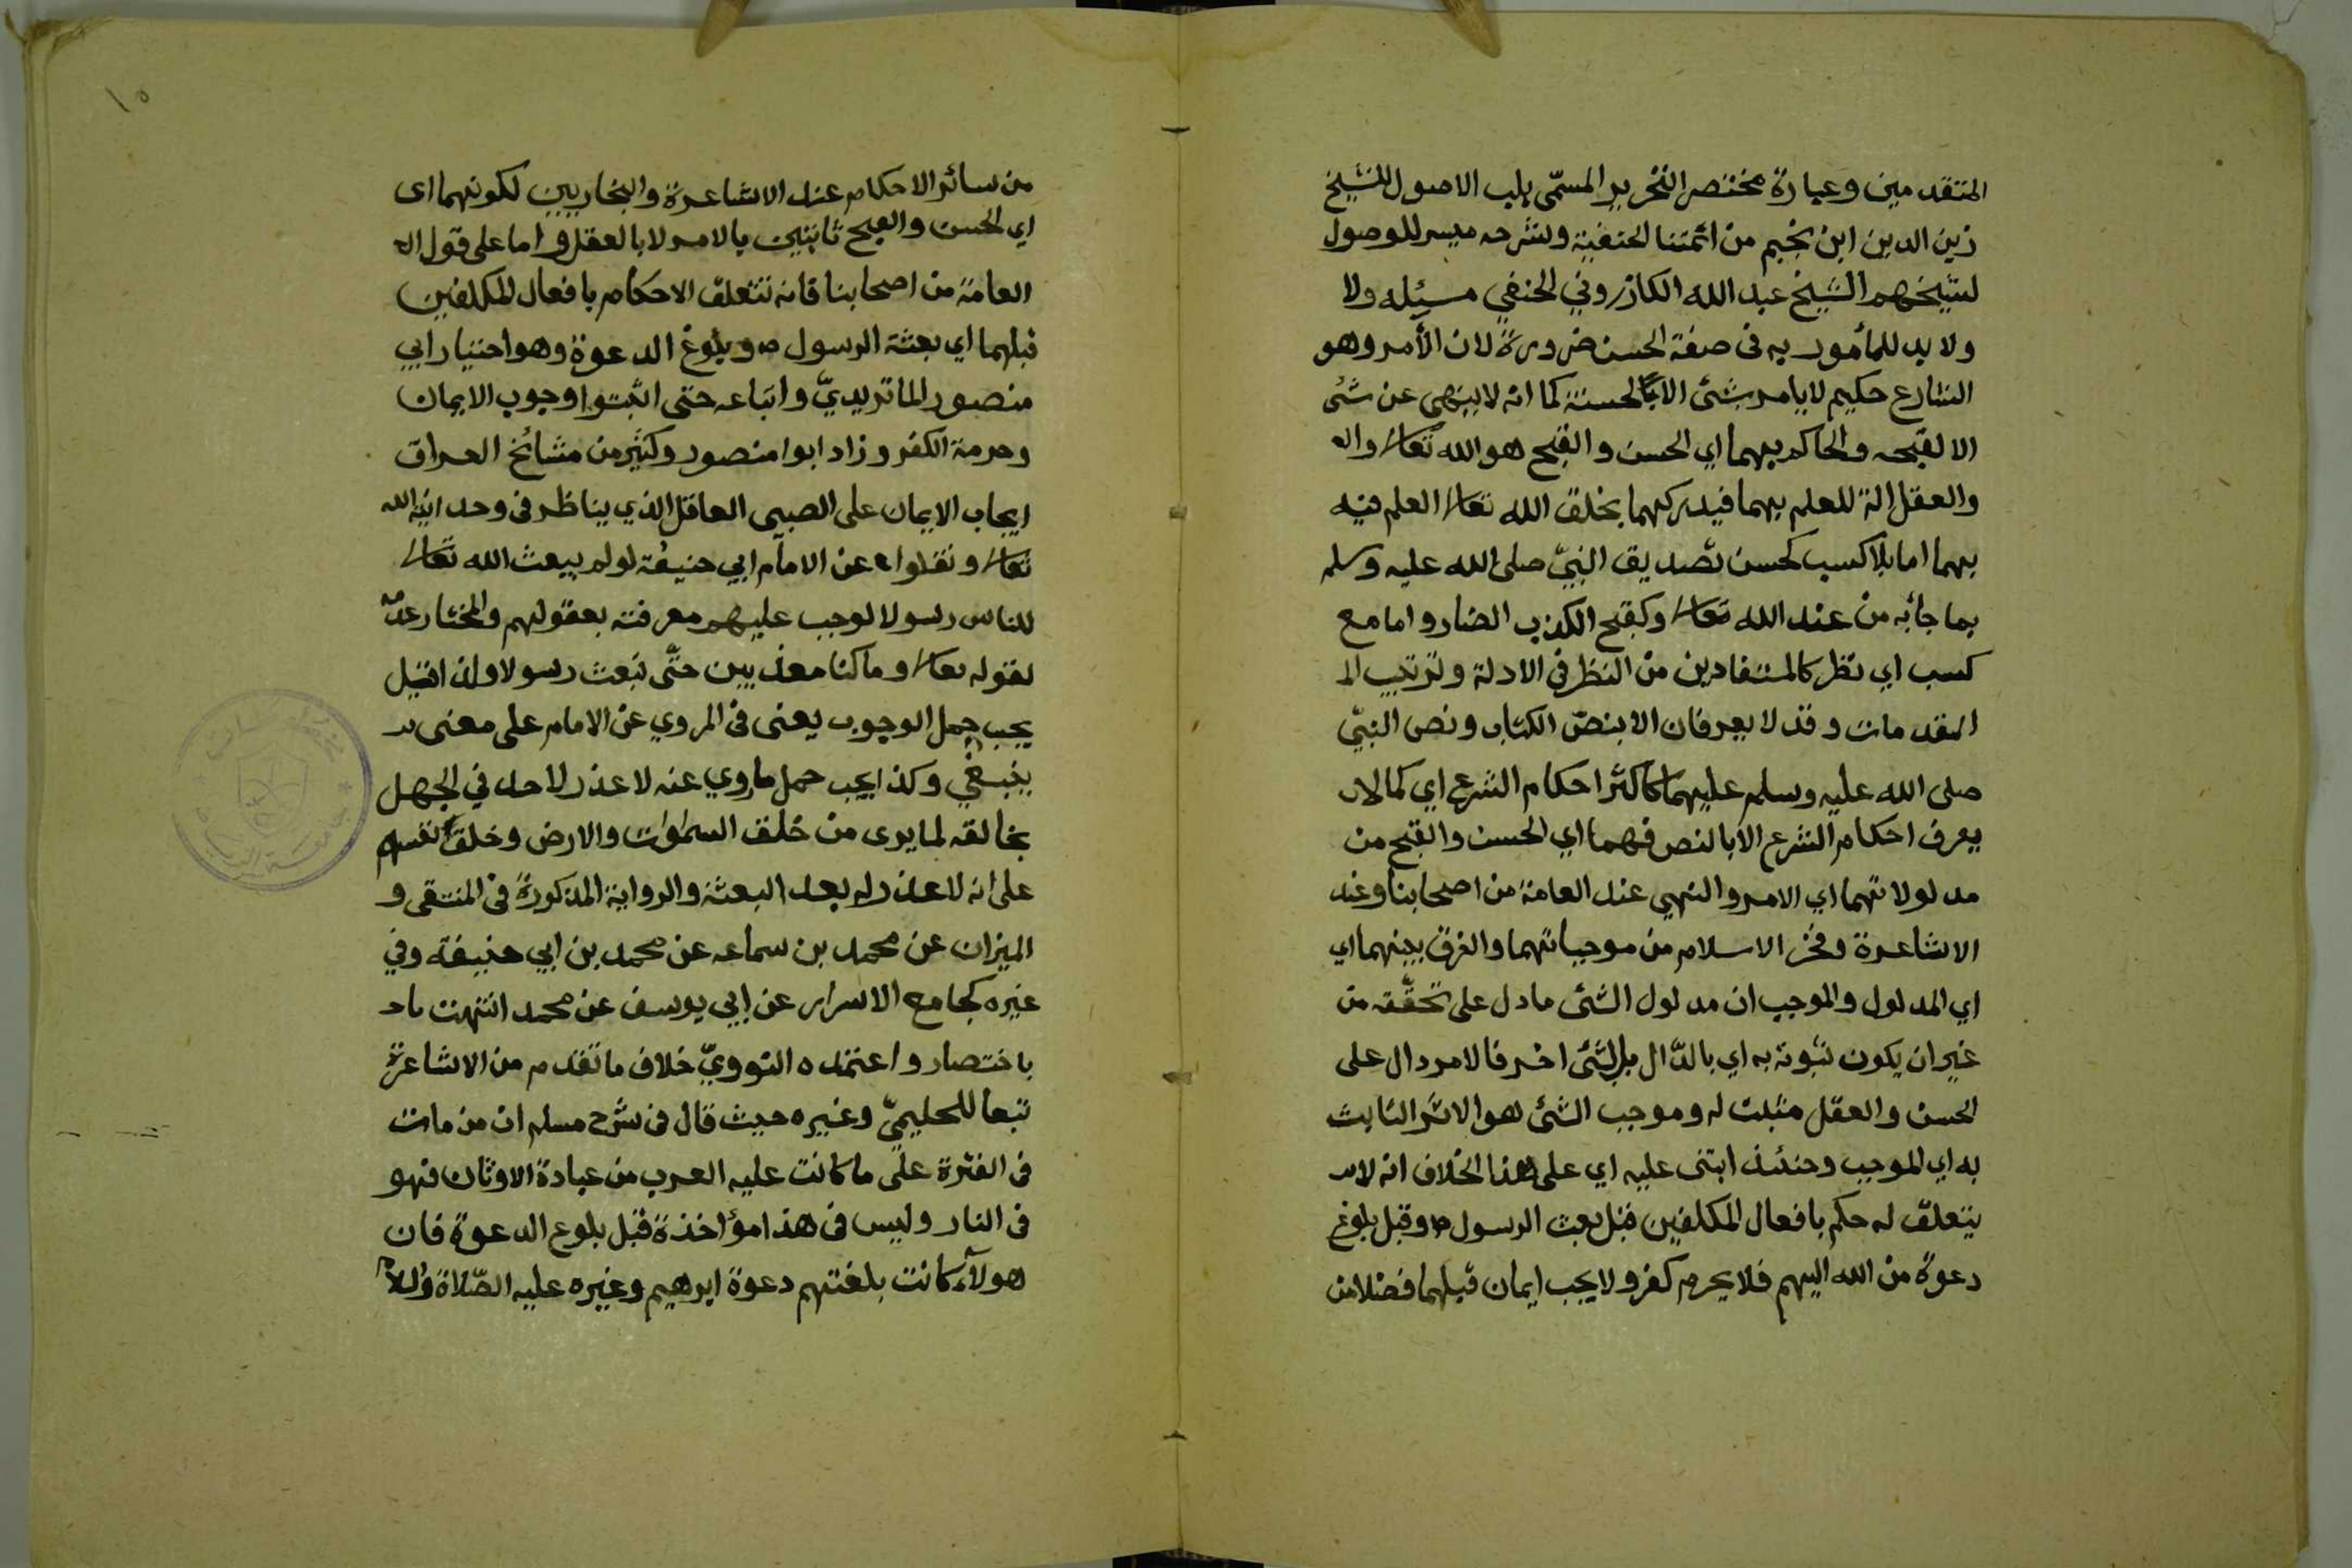 المتقدمين وعبارة مختصر التحرير المسمّى بلب الاصول للشيخ
زين الدين ابن نجيم من ائمتنا الحنفية وشرحه ميسر للوصول
لشيخهم الشيخ عبد الله الكازروني الحنفي مسئله ولا
ولا بد للمأمور به فى صفة الحسن ضرورة لان الأمر وهو
الشارع حكيم لايامر بشئ الا بالحسنة كما انه لاينهى عن شئ
الا لقبحه والحاكم بهما اي الحسن والقبح هو الله تعالى واله
والعقل الة للعلم بهما فيدركهما بخلق الله تعالى العلم فيه
بهما اما بلا كسب كحسن تصديق النبيّ صلى الله عليه وسلم
بما جأبه من عند الله تعالى وكقبح الكذب الضار واما مع
كسب اي نظر كالمستفادين من النظر في الادلة وترتيب الـ
المقدمات وقد لا يعرفان الا بنصّ الكتاب ونص النبيّ
صلى الله عليه وسلم عليهما كاكثر احكام الشرع اي كما لا
يعرف احكام الشرع الا بالنص فهما اي الحسن والقبح من
مدلولاتهما اي الامر والنهي عند العامة من اصحابنا وعند
الاشاعرة وفخر الاسلام من موجباتهما والفرق بينهما اي
اي المدلول والموجب ان مدلول الشئ ما دل على تحقّقه من
غير ان يكون ثبوته به اي بالدّال بل بشئ اخر فالامر دال على
الحسن والعقل مثبت له وموجب الشئ هو الاثر الثابت
به اي الموجب وحنئذ ابتنى عليه اي على هذا الخلاف انه لا
يتعلق له حكم بافعال المكلفين قبل بعث الرسول ص وقبل بلوغ
دعوة من الله اليهم فلا يحرم كفر ولا يجب ايمان قبلهما فضلا من
١٥
من سائر الاحكام عند الاشاعرة والبخاريين لكونهما اى
اي الحسن والقبح ثابتين بالامر لا بالعقل واما على قول اله
العامة من اصحابنا فانه تتعلق الاحكام بافعال المكلفين
قبلهما اي بعثة الرسول ص وبلوغ الدعوة وهو اختيار ابي
منصور الماتريديّ واتباعه حتى اثبتوا وجوب الايمان
وحرمة الكفر وزاد ابوا منصور وكثير من مشائخ العراق
ايجاب الايمان على الصبي العاقل الذي يناظر فى وحدانية الله
تعالى ونقلوا عن الامام ابي حنيفة لو لم يبعث الله تعالى
للناس رسولا لوجب عليهم معرفته بعقولهم والمختار عدمه
لقوله تعالى وما كنا معذبين حتّى نبعث رسولا واذا قيل
يجب حمل الوجوب يعنى فى المروي عن الامام على معنى
ينبغي وكذا يجب حمل ما روي عنه لا عذر لاحد في الجهل
بخالقه لما يرى من خلق السموات والارض وخلق نفسهم
على انه لا عذر له بعد البعثة والرواية المذكورة فى المنتقى و
الميزان عن محمد بن سماعه عن محمد بن ابي حنيفة وفي
غيره كجامع الاسرار عن ابي يوسف عن محمد انتهت
باختصار واعتمده النوويّ خلاف ما تقدم من الاشاعرة
تبعا للحليميّ وغيره حيث قال فى شرح مسلم ان من مات
فى الفترة على ما كانت عليه العرب من عبادة الاوثان فهو
فى النار وليس فى هذا مؤاخذة قبل بلوغ الدعوة فان
هولآء كانت بلغتهم دعوة ابرهيم وغيره عليه الصّلاة والسلام